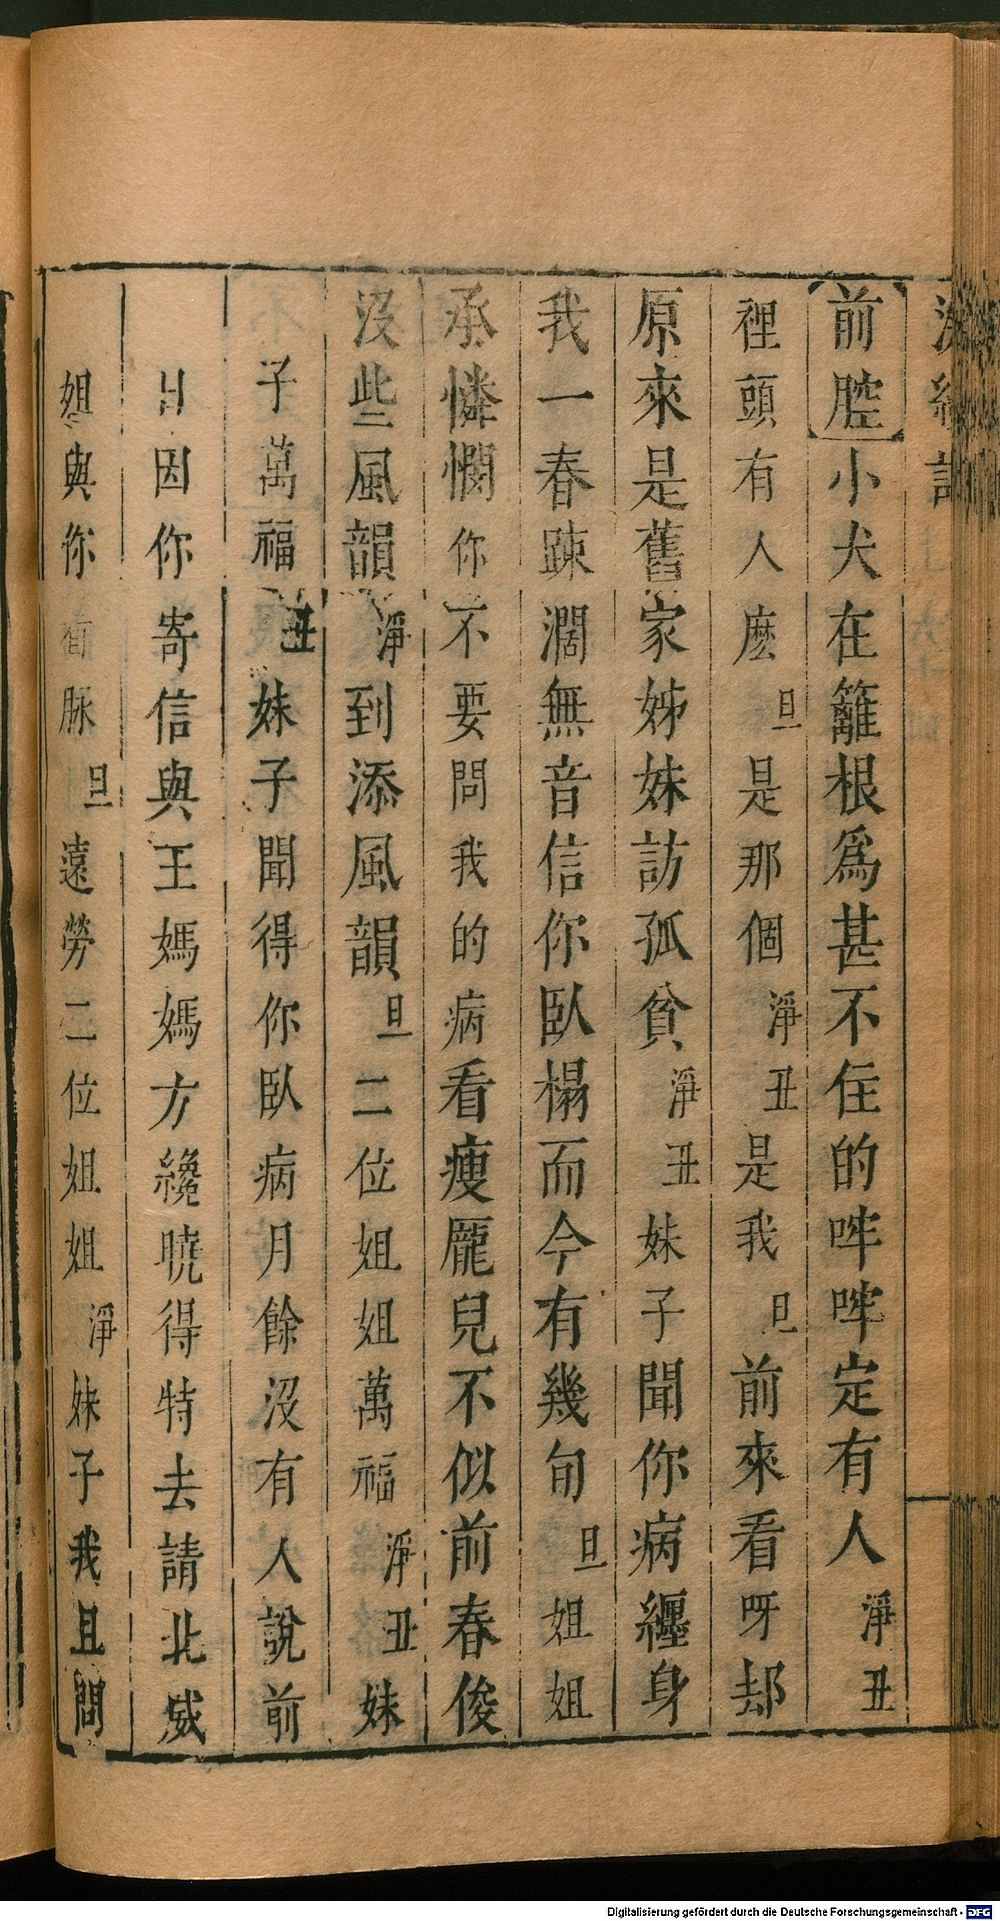 前腔小犬在籬根爲甚不住的哰哰定有人淨丑
裡頭有人麽旦是那個淨丑是我旦前來看呀却
原來是舊家姊妹訪孤貧淨丑妹子聞你病纏身
我一春踈濶無音信你臥榻而今有幾旬旦姐姐
承憐憫你不要問我的病看瘦龐兒不似前春俊
沒些風韻淨到添風韻旦二位姐姐萬福淨丑妹
子萬福丑妹子聞得你臥病月餘沒有人說前
日因你寄信與王媽媽方纔曉得特去請北威
姐與你看脉旦遠勞二位姐姐淨妹子我且問
Digitalisierung gefördert durch die Deutsche Forschungsgemeinschaft - DFG